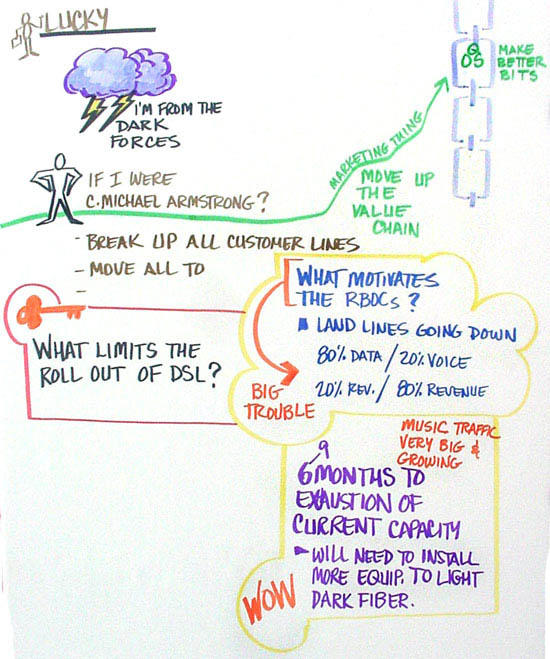 LUCKY
I'M FROM THE
DARK
FORCES
QOS
MAKE
BETTER
BITS
MARKETING THING
MOVE UP
THE
VALUE
CHAIN
IF I WERE
C. MICHAEL ARMSTRONG?
- BREAK UP ALL CUSTOMER LINES
- MOVE ALL TO
-
WHAT LIMITS THE
ROLL OUT OF DSL?
WHAT MOTIVATES
THE RBOCs?
LAND LINES GOING DOWN
80% DATA / 20% VOICE
20% REV. / 80% REVENUE
BIG
TROUBLE
MUSIC TRAFFIC
VERY BIG &
GROWING
9
6 MONTHS TO
EXAUSTION OF
CURRENT CAPACITY
WILL NEED TO INSTALL
MORE EQUIP. TO LIGHT
DARK FIBER.
WOW